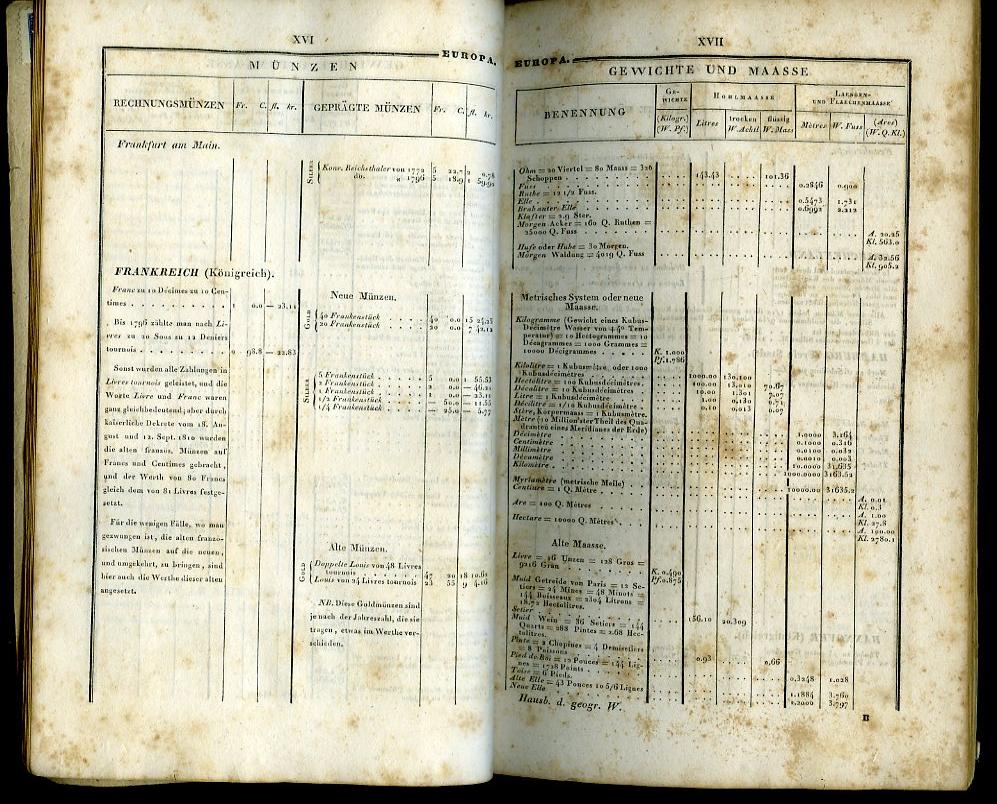 XVI
EUROPA.
MÜNZEN
RECHNUNGSMÜNZEN Fr. C. fl. kr. GEPRÄGTE MÜNZEN Fr. C. fl. kr.
Frankfurt am Main.
SILBER
Konv. Reichsthaler von 1772 5
do. " 1796 5 18.9
FRANKREICH (Königreich).
Franc zu 10 Décimes zu 10 Cen-
times . . . . . . . . . 1 0.0 — 23.11
Bis 1796 zählte man nach Li-
vres zu 20 Sous zu 12 Deniers
tournois . . . . . . . . 0 98.8 — 22.83
Sonst wurden alle Zahlungen in
Livres tournois geleistet, und die
Worte Livre und Franc waren
ganz gleichbedeutend; aber durch
kaiserliche Dekrete vom 18. Au-
gust und 12. Sept. 1810 wurden
die alten französ. Münzen auf
Francs und Centimes gebracht,
und der Werth von 80 Francs
gleich dem von 81 Livres festge-
setzt.
Für die wenigen Fälle, wo man
gezwungen ist, die alten franzö-
sischen Münzen auf die neuen,
und umgekehrt, zu bringen, sind
hier auch die Werthe dieser alten
angesetzt.
Neue Münzen.
GOLD
40 Frankenstück . . . . 40 0.0 15 24.25
20 Frankenstück . . . . 20 0.0 7 42.12
SILBER
5 Frankenstück . . . . . 5 0.0 1 55.53
2 Frankenstück . . . . . 2 0.0 — 46.21
1 Frankenstück . . . . . 1 0.0 — 23.11
1/2 Frankenstück . . . . — 50.0 — 11.55
1/4 Frankenstück . . . . — 25.0 — 5.77
Alte Münzen.
GOLD
Doppelte Louis von 48 Livres
tournois . . . . . . . 47 20 18 10.62
Louis von 24 Livres tournois 23 55 9 4.16
NB. Diese Goldmünzen sind
je nach der Jahreszahl, die sie
tragen, etwas im Werthe ver-
schieden.
XVII
EUROPA.
GEWICHTE UND MAASSE
BENENNUNG
GE-
WICHTE
(Kilogr.)
(W. Pf.)
HOHLMAASSE
Litres
trocken
W. Achtl
flüssig
W. Mass
LAENGEN-
UND FLAECHENMAASSE
Mètres W. Fuss
(Ares)
(W. Q. Kl.)
Ohm = 20 Viertel = 80 Maass = 320
Schoppen . . . . . 143.43 101.36
Fuss . . . . . 0.2846 0.900
Ruthe = 12 1/2 Fuss.
Elle . . . . . 0.5473 1.731
Brabanter Elle . . . . . 0.6992 2.212
Klafter = 2.9 Ster.
Morgen Acker = 160 Q. Ruthen =
25000 Q. Fuss . . . . . A. 20.25
Kl. 563.0
Hufe oder Hube = 30 Morgen.
Morgen Waldung = 4019 Q. Fuss . . . . . A. 32.56
Kl. 905.2
Metrisches System oder neue
Maasse.
Kilogramme (Gewicht eines Kubus-
Decimètre Wasser von +4° Tem-
peratur) = 10 Hectogrammes = 10
Décagrammes = 1000 Grammes =
10000 Décigrammes . . . . . K. 1.000
Pf. 1.786
Kilolitre = 1 Kubusmètre, oder 1000
Kubusdécimètres . . . . . 1000.00 130.100
Hectolitre = 100 Kubusdécimètres. 100.00 13.010 70.67
Décalitre = 10 Kubusdécimètres . 10.00 1.301 7.07
Litre = 1 Kubusdécimètre . . . 1.00 0.130 0.71
Décilitre = 1/10 Kubusdécimètre . 0.10 0.013 0.07
Stère, Körpermaass = 1 Kubusmètre.
Mètre (10 Million'ster Theil des Qua-
dranten eines Meridianes der Erde) 1.0000 3.164
Décimètre . . . . . 0.1000 0.316
Centimètre . . . . . 0.0100 0.032
Millimètre . . . . . 0.0010 0.003
Décamètre . . . . . 10.0000 31.635
Kilomètre . . . . . 1000.0000 3163.52
Myriamètre (metrische Meile) 10000.00 31635.2
Centiare = 1 Q. Mètre . . . . . A. 0.01
Kl. 0.3
Are = 100 Q. Mètres . . . . . A. 1.00
Kl. 27.8
Hectare = 10000 Q. Mètres . . . . . A. 100.00
Kl. 2780.1
Alte Maasse.
Livre = 16 Unzen = 128 Gros =
9216 Grän . . . . . K. 0.490
Pf. 0.875
Muid Getreide von Paris = 12 Se-
tiers = 24 Mines = 48 Minots =
144 Boisseaux = 2304 Litrons =
18.72 Hectolitres.
Setier . . . . . 156.10 20.309
Muid Wein = 36 Setiers = 144
Quarts = 288 Pintes = 2.68 Hec-
tolitres.
Pinte = 2 Chopines = 4 Demisetiers
= 8 Poissons . . . . . 0.93 0.66
Pied de Roi = 12 Pouces = 144 Lig-
nes = 1728 Points . . . . . 0.3248 1.028
Toise = 6 Pieds.
Alte Elle = 43 Pouces 10 5/6 Lignes 1.1884 3.760
Neue Elle . . . . . 1.2000 3.797
Hausb. d. geogr. W.
B